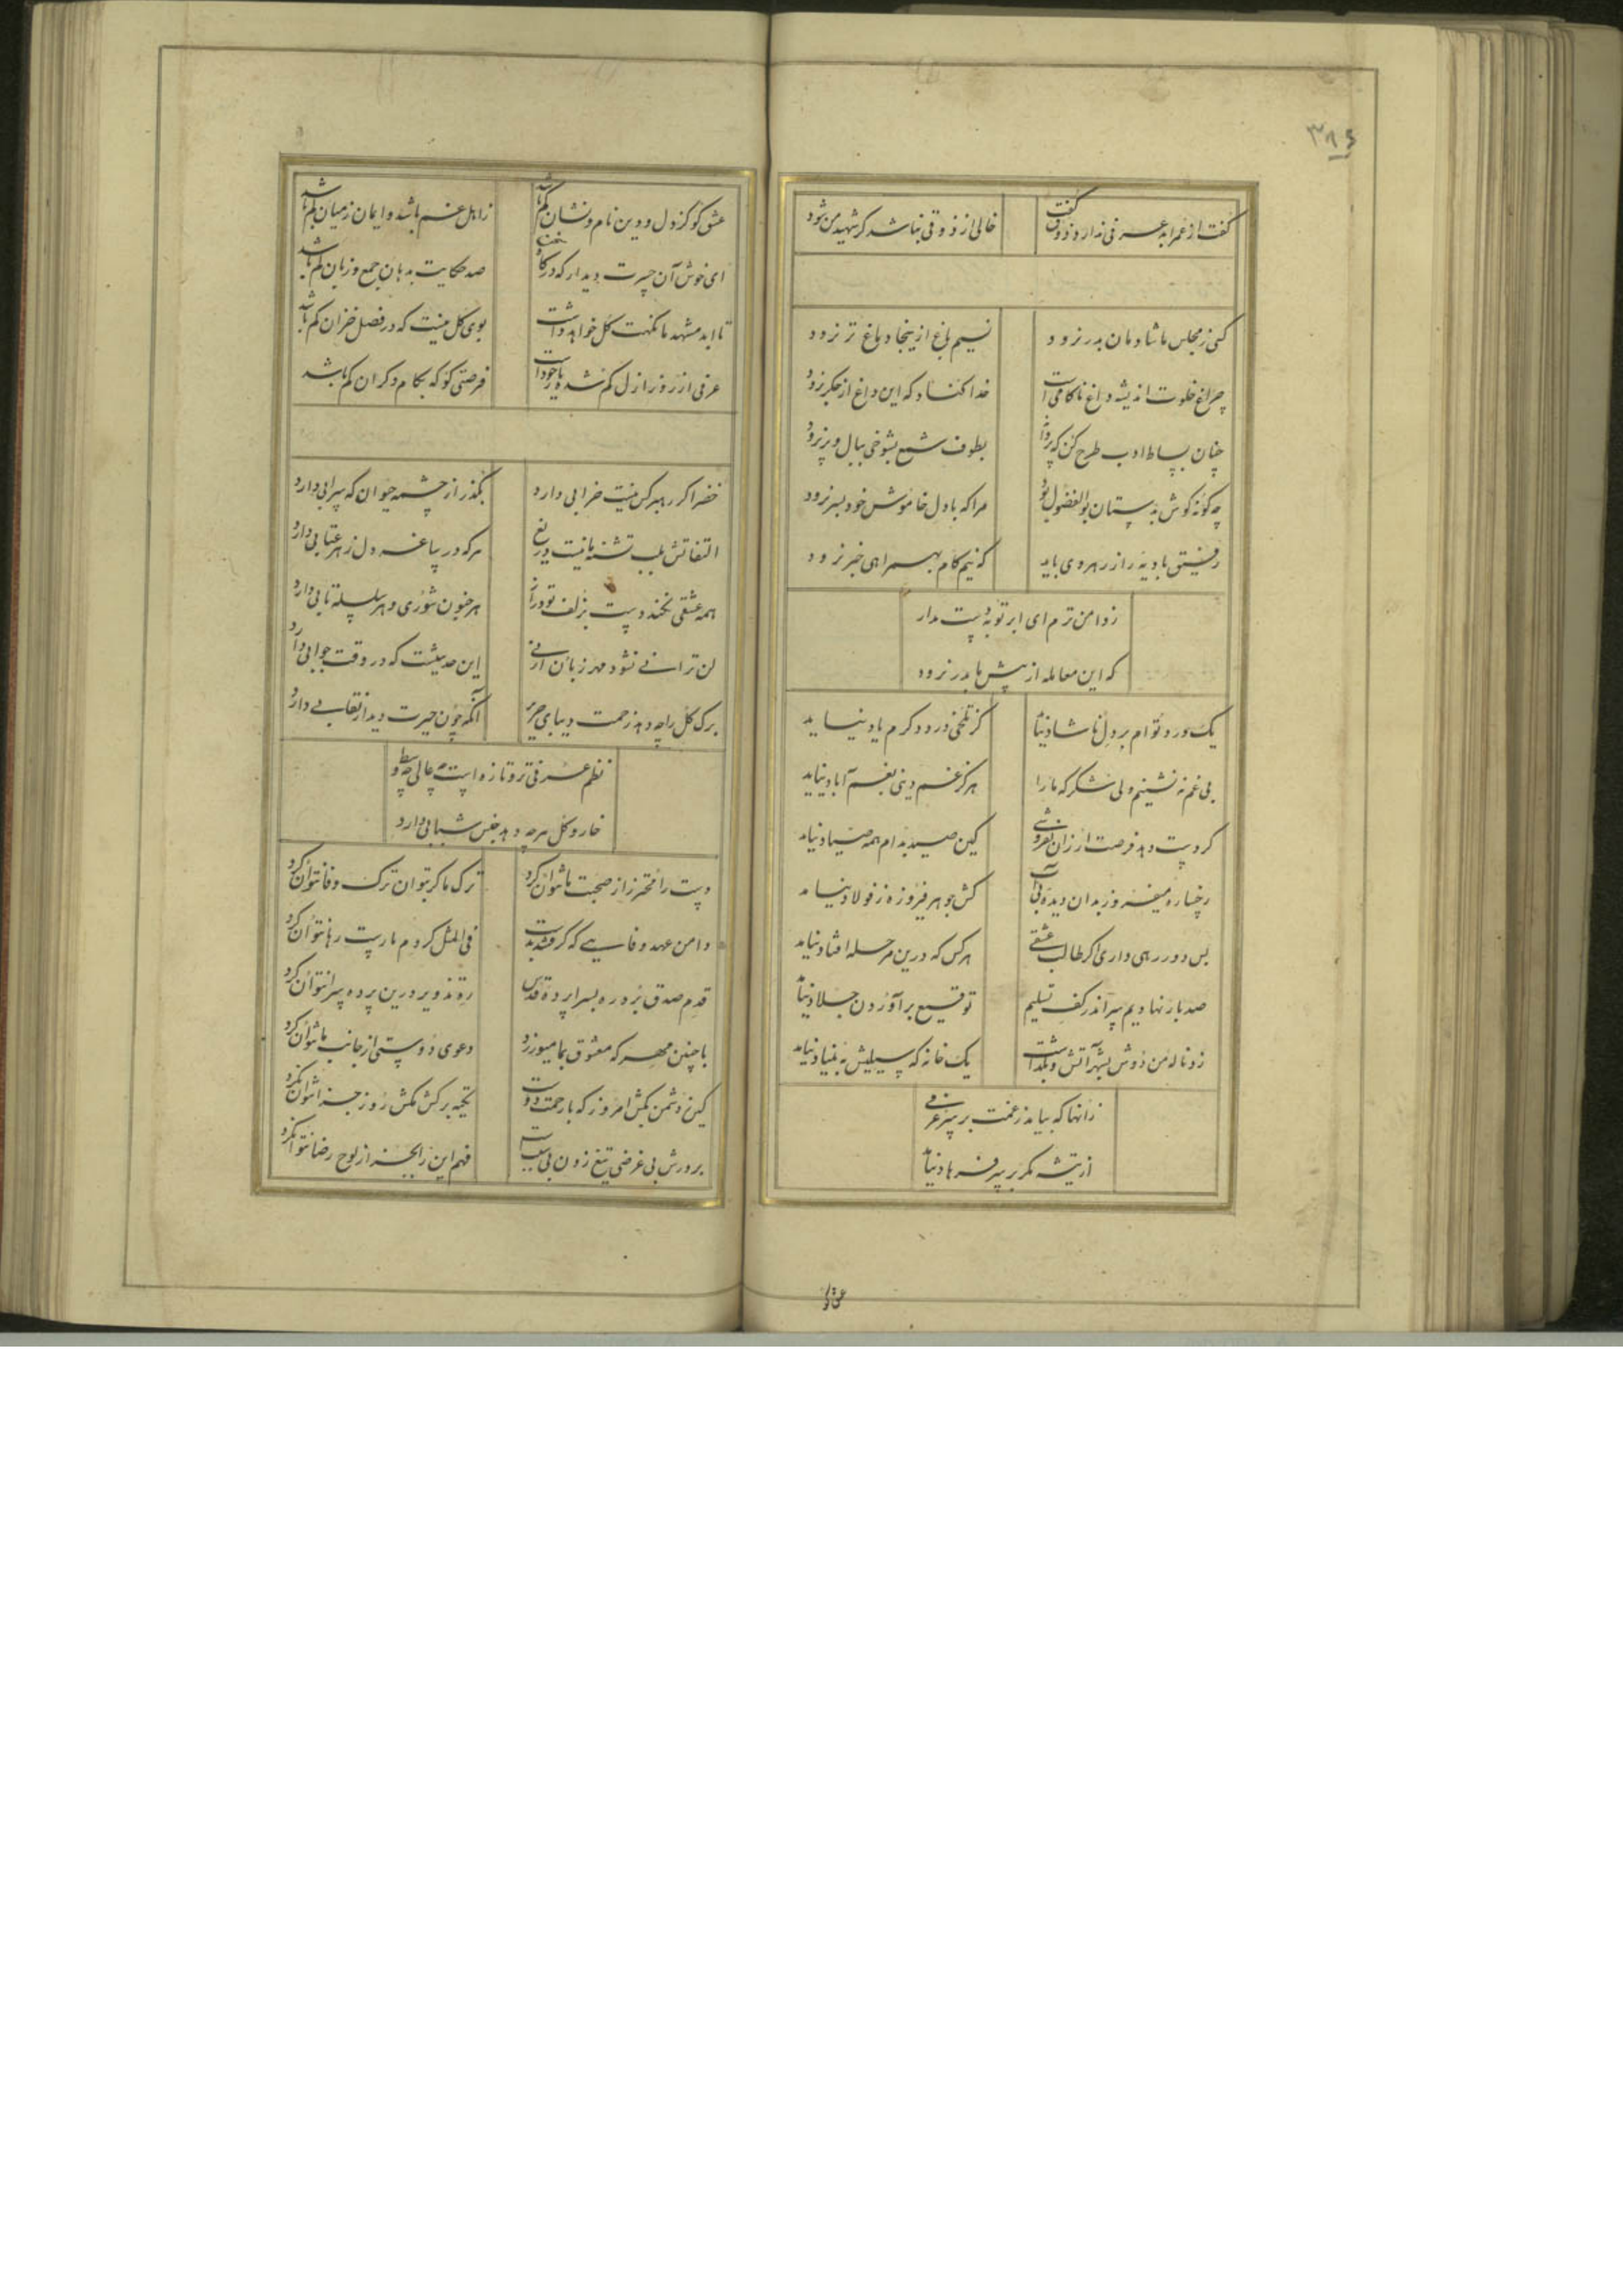 ۳۸۶
گفت از عمر ابد عرفی ندارد ذوق گفت خالی از ذوقی نباشد گر شهید من شود
کسی ز مجلس ما شادمان بدر نرود نسیم باغ ازینجا دماغ تر نرود
چراغ خلوت اندیشه داغ ناکامی است خدا کناد که این داغ از جگر نرود
چنان بساط ادب طرح کن که پروانه بطوف شمع بشوخی ببال و پر نرود
چه گونه گوش به دستان بوالفضول بود مرا که با دل خاموش خود بسر نرود
رفیق بادیه را رهروی باید که نیم گام بهمراهی خبر نرود
ز دامن ترم ای ابر توبه دست مدار
که این معامله از پیش ما بدر نرود
یک درد توام بر دل ناشاد نیاید کز تلخی درد دگرم یاد نیاید
بی غم نه نشینم ولی شکر که ما را هرگز غم دینی بغم آباد نیاید
گر دست دهد فرصت ارزان نفروشی کین صید بدام همه صیاد نیاید
رخساره میفروز بدان دیده بی آب کش جوهر فیروزه ز فولاد نیاید
بس دور رهی داری اگر طالب عشقی هر کس که درین مرحله افتاد نیاید
صد بار نهادیم سر اندر کف تسلیم توقیع برآوردن جلاد نیاید
زد ناله من دوش بشهر آتش و نگذاشت یک خانه که سیلیش به بنیاد نیاید
زانها که بیاید ز غمت بر سر عرفی
از تیشه مگر بر سر فرهاد نیاید
عشق کو کز دل و دین نام و نشان کم باشد ز اهل غم باشد و ایمان ز میان کم باشد
ای خوش آن حیرت دیدار که در صد حکایت بدهان جمع و زبان کم باشد
تا ابد مشهد ما نکهت گل خواهد داشت بوی گل نیست که در فصل خزان کم باشد
عرفی از روز ازل گم شده با خود است فرصتی کو که بکام دگران کم باشد
خضر اگر رهبر کس نیست خرابی دارد بگذر از چشمه حیوان که سرابی دارد
التفاتش بلب تشنه ما نیست دریغ هر که در ساغر دل زهر عتابی دارد
همه عشقی نخندد پست بزلف تو دراز هر جنون شوری و هر سلسله تابی دارد
لن ترانی نشود مهر زبان ارنی این حدیثیست که در وقت جوابی دارد
برگ گل را چه دهد زحمت دیبای حریر آنکه چون حیرت دیدار نقابی دارد
نظم عرفی تر و تازه است چه عالی چه وسط
خار و گل هر چه دهد جنس شبابی دارد
دست را محترز از صحبت ما نتوان کرد ترک ما گر بتوان ترک وفا نتوان کرد
دامن عهد وفایی که گرفتند بدست فی المثل گر دم مارست رها نتوان کرد
قدم صدق بزور ره بسراپرده قدس ره تزویر درین پرده سرا نتوان کرد
با چنین مهر که معشوق بما میورزد دعوی دوستی از جانب ما نتوان کرد
کین دشمن بکش امروز که با رحمت دوست تکیه بر کش مکش روز جزا نتوان کرد
بر درش بی غرضی تیغ زدن بی سبب است فهم این راز بجز از لوح رضا نتوان کرد